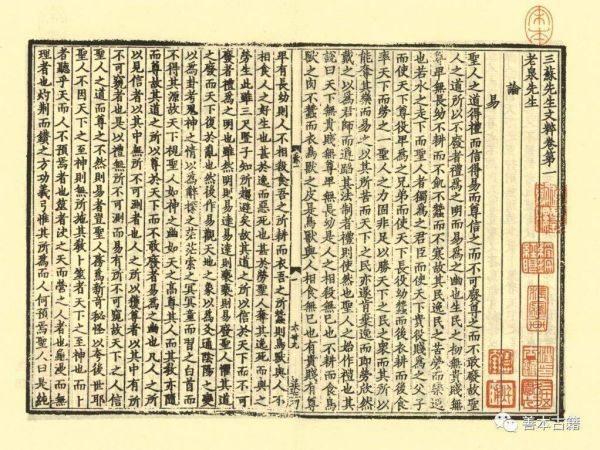 三蘇先生文粹卷第一
老泉先生
論
易
聖人之道得禮而信得易而尊信之而不可廢尊之而不敢廢故聖
人之道所以不廢者禮為之明而易為之幽也生民之初無貴賤無
尊卑無長幼不耕而不飢不蠶而不寒故其民逸民之苦勞而樂逸
也若水之走下而聖人者獨為之君臣而使天下貴役賤為之父子
而使天下尊役卑為之兄弟而使天下長役幼蠶而後衣耕而後食
率天下而勞之一聖人之力固非足以勝天下之民之衆而其所以
能奪其樂而易之以其所苦而天下之民亦遂肯棄逸而即勞欣然
戴之以為君師而遵蹈其法制者禮則使然也聖人之始作禮也其
說曰天下無貴賤無尊卑無長幼是人之相殺無已也不耕而食鳥
獸之肉不蠶而衣鳥獸之皮是鳥獸與人相食無已也有貴賤有尊
卑有長幼則人不相殺食吾之所耕而衣吾之所蠶則鳥獸與人不
相食人之好生也甚於逸而惡死也甚於勞聖人奪其逸死而與之
勞生此雖三尺豎子知所趨避矣故其道之所以信於天下而不可
廢者禮為之明也雖然明則易達易達則褻褻則易廢聖人懼其道
之廢而天下復於亂也然後作易觀天地之象以為爻通陰陽之變
以為卦考鬼神之情以為辭探之茫茫索之冥冥童而習之白首而
不得其源故天下視聖人如神之幽如天之高尊其人而其教亦隨
而尊故其道之所以尊於天下而不敢廢者易為之幽也凡人之所
以見信者以其中無所不可測者也人之所以獲尊者以其中有所
不可窺者也是以禮無所不可測而易有所不可窺故天下之人信
聖人之道而尊之不然則易者豈聖人務為新奇秘怪以夸後世耶
聖人不因天下之至神則無所施其教卜筮者天下之至神也而卜
者聽乎天而人不預焉者也筮者決之天而營之人者也龜漫而無
理者也灼荆而鑽之方功義弓惟其所為而人何預焉聖人曰是純
善本古籍